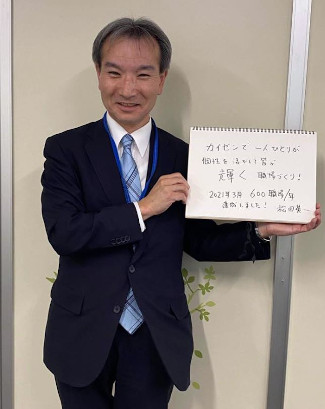 カイゼンで 一人ひとりが
個性を活かして皆が
輝く 職場づくり!
2021年3月 600職場/年
達成しました!